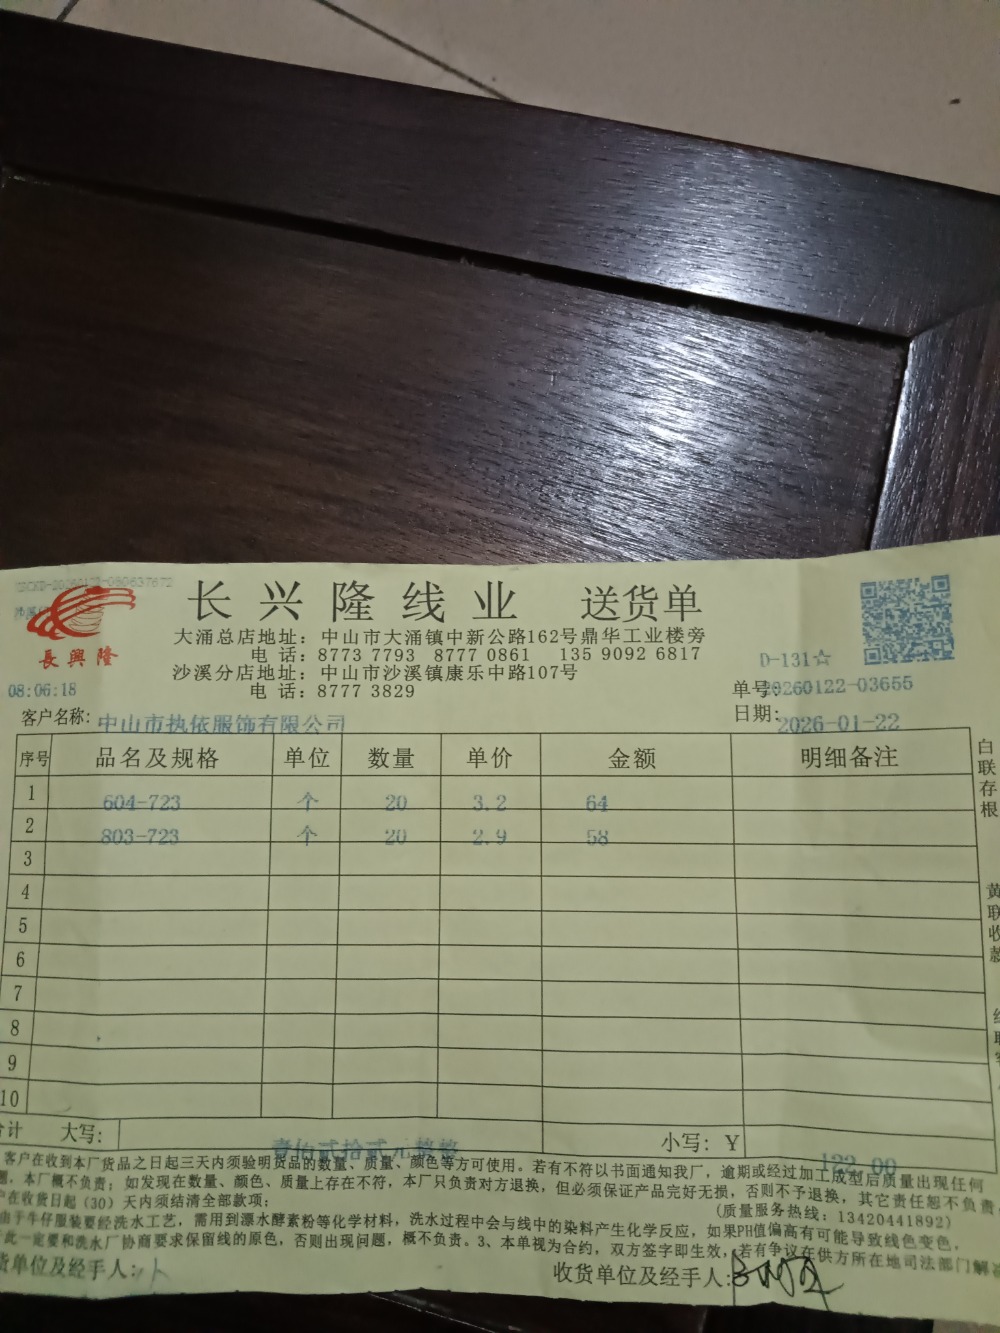 长兴隆线业 送货单
長興隆
大涌总店地址：中山市大涌镇中新公路162号鼎华工业楼旁
电 话：8773 7793 8777 0861 135 9092 6817
沙溪分店地址：中山市沙溪镇康乐中路107号
电 话：8777 3829
D-131☆
08:06:18
单号：20260122-03655
客户名称：中山市执依服饰有限公司
日期：2026-01-22
序号 品名及规格 单位 数量 单价 金额 明细备注
1 604-723 个 20 3.2 64
2 803-723 个 20 2.9 58
3
4
5
6
7
8
9
10
合计 大写： 壹佰贰拾贰元整 小写：Y 122.00
白联存根
黄联收款
客户在收到本厂货品之日起三天内须验明货品的数量、质量、颜色等方可使用。若有不符以书面通知我厂，逾期或经过加工成型后质量出现任何
题，本厂概不负责；如发现在数量、颜色、质量上存在不符，本厂只负责对方退换，但必须保证产品完好无损，否则不予退换，其它责任恕不负责
户在收货日起（30）天内须结清全部款项； （质量服务热线：13420441892）
由于牛仔服装要经洗水工艺，需用到漂水酵素粉等化学材料，洗水过程中会与线中的染料产生化学反应，如果PH值偏高有可能导致线色变色，
此一定要和洗水厂协商要求保留线的原色，否则出现问题，概不负责。3、本单视为合约，双方签字即生效，若有争议在供方所在地司法部门解决
货单位及经手人： 收货单位及经手人：